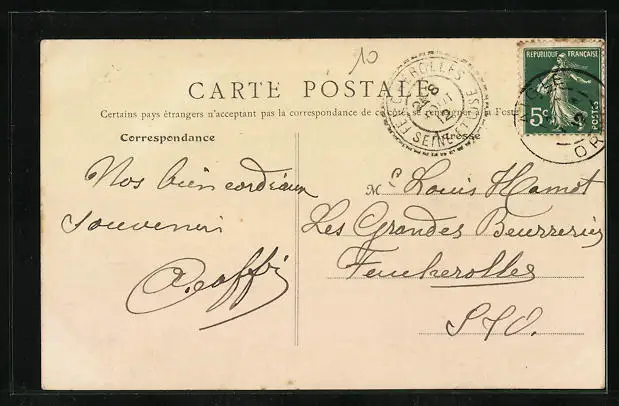 10
CARTE POSTALE
Certains pays étrangers n'acceptent pas la correspondance de ce côté, se renseigner à la Poste
Correspondance
Adresse
RÉPUBLIQUE FRANÇAISE
5c
POSTES
SEINE-ET-OISE
Nos bien cordiaux
souvenirs
M. Louis Hamot
Les Grandes Beurreries
Feucherolles
S/O.